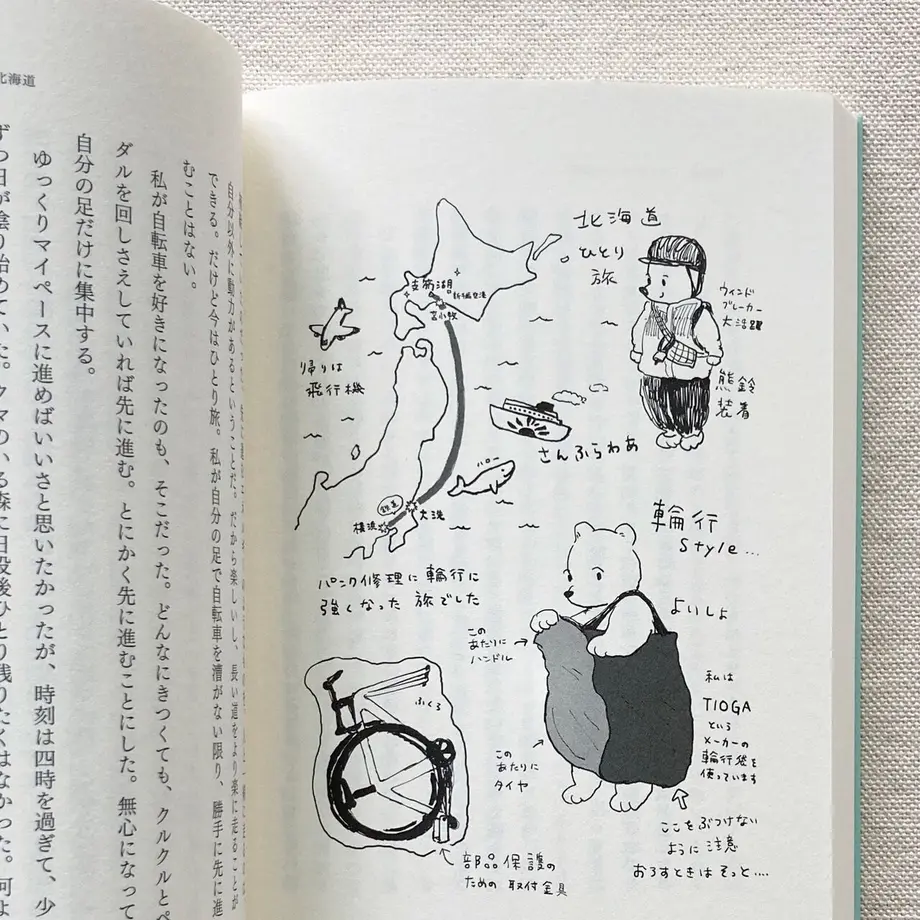 北海道
自分以外に動力があるということだ。だから楽しいし、長い道をより楽に走ることが
できる。だけど今はひとり旅。私が自分の足で自転車を漕がない限り、勝手に先に進
むことはない。
私が自転車を好きになったのも、そこだった。どんなにきつくても、クルクルとペ
ダルを回しさえしていれば先に進む。とにかく先に進むことにした。無心になって
自分の足だけに集中する。
ゆっくりマイペースに進めばいいさと思いたかったが、時刻は四時を過ぎて、少
ずつ日が陰り始めていた。クマのいる森に日没後ひとり残りたくはなかった。何よ
北海道
ひとり
旅
支笏湖
新千歳空港
苫小牧
ウィンド
ブレーカー
大活躍
帰りは
飛行機
熊鈴
装着
さんふらわあ
パンー
大洗
横浜
パンク修理に輪行に
強くなった旅でした
輪行
style...
よいしょ
この
あたりに
ハンドル
ふくろ
私は
TIOGA
という
メーカーの
輪行袋を
使っています
この
あたりに
タイヤ
ここをぶつけない
ように注意
おろすときはそっと....
部品保護の
ための取付金具